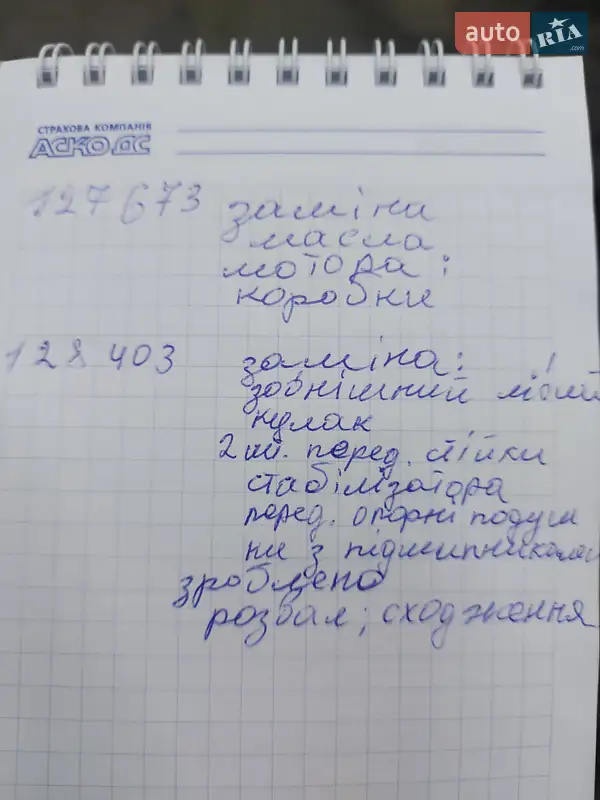 auto RIA .com
СТРАХОВА КОМПАНІЯ
АСКО ДС
127673 заміни
масла
мотора і
коробки
128 403 заміна: !
зовнішний лівий
кулак
2 шт. перед. стійки
стабілізатора
перед. опорні подуш
ки з підшипниками
зроблено
розвал; сходження